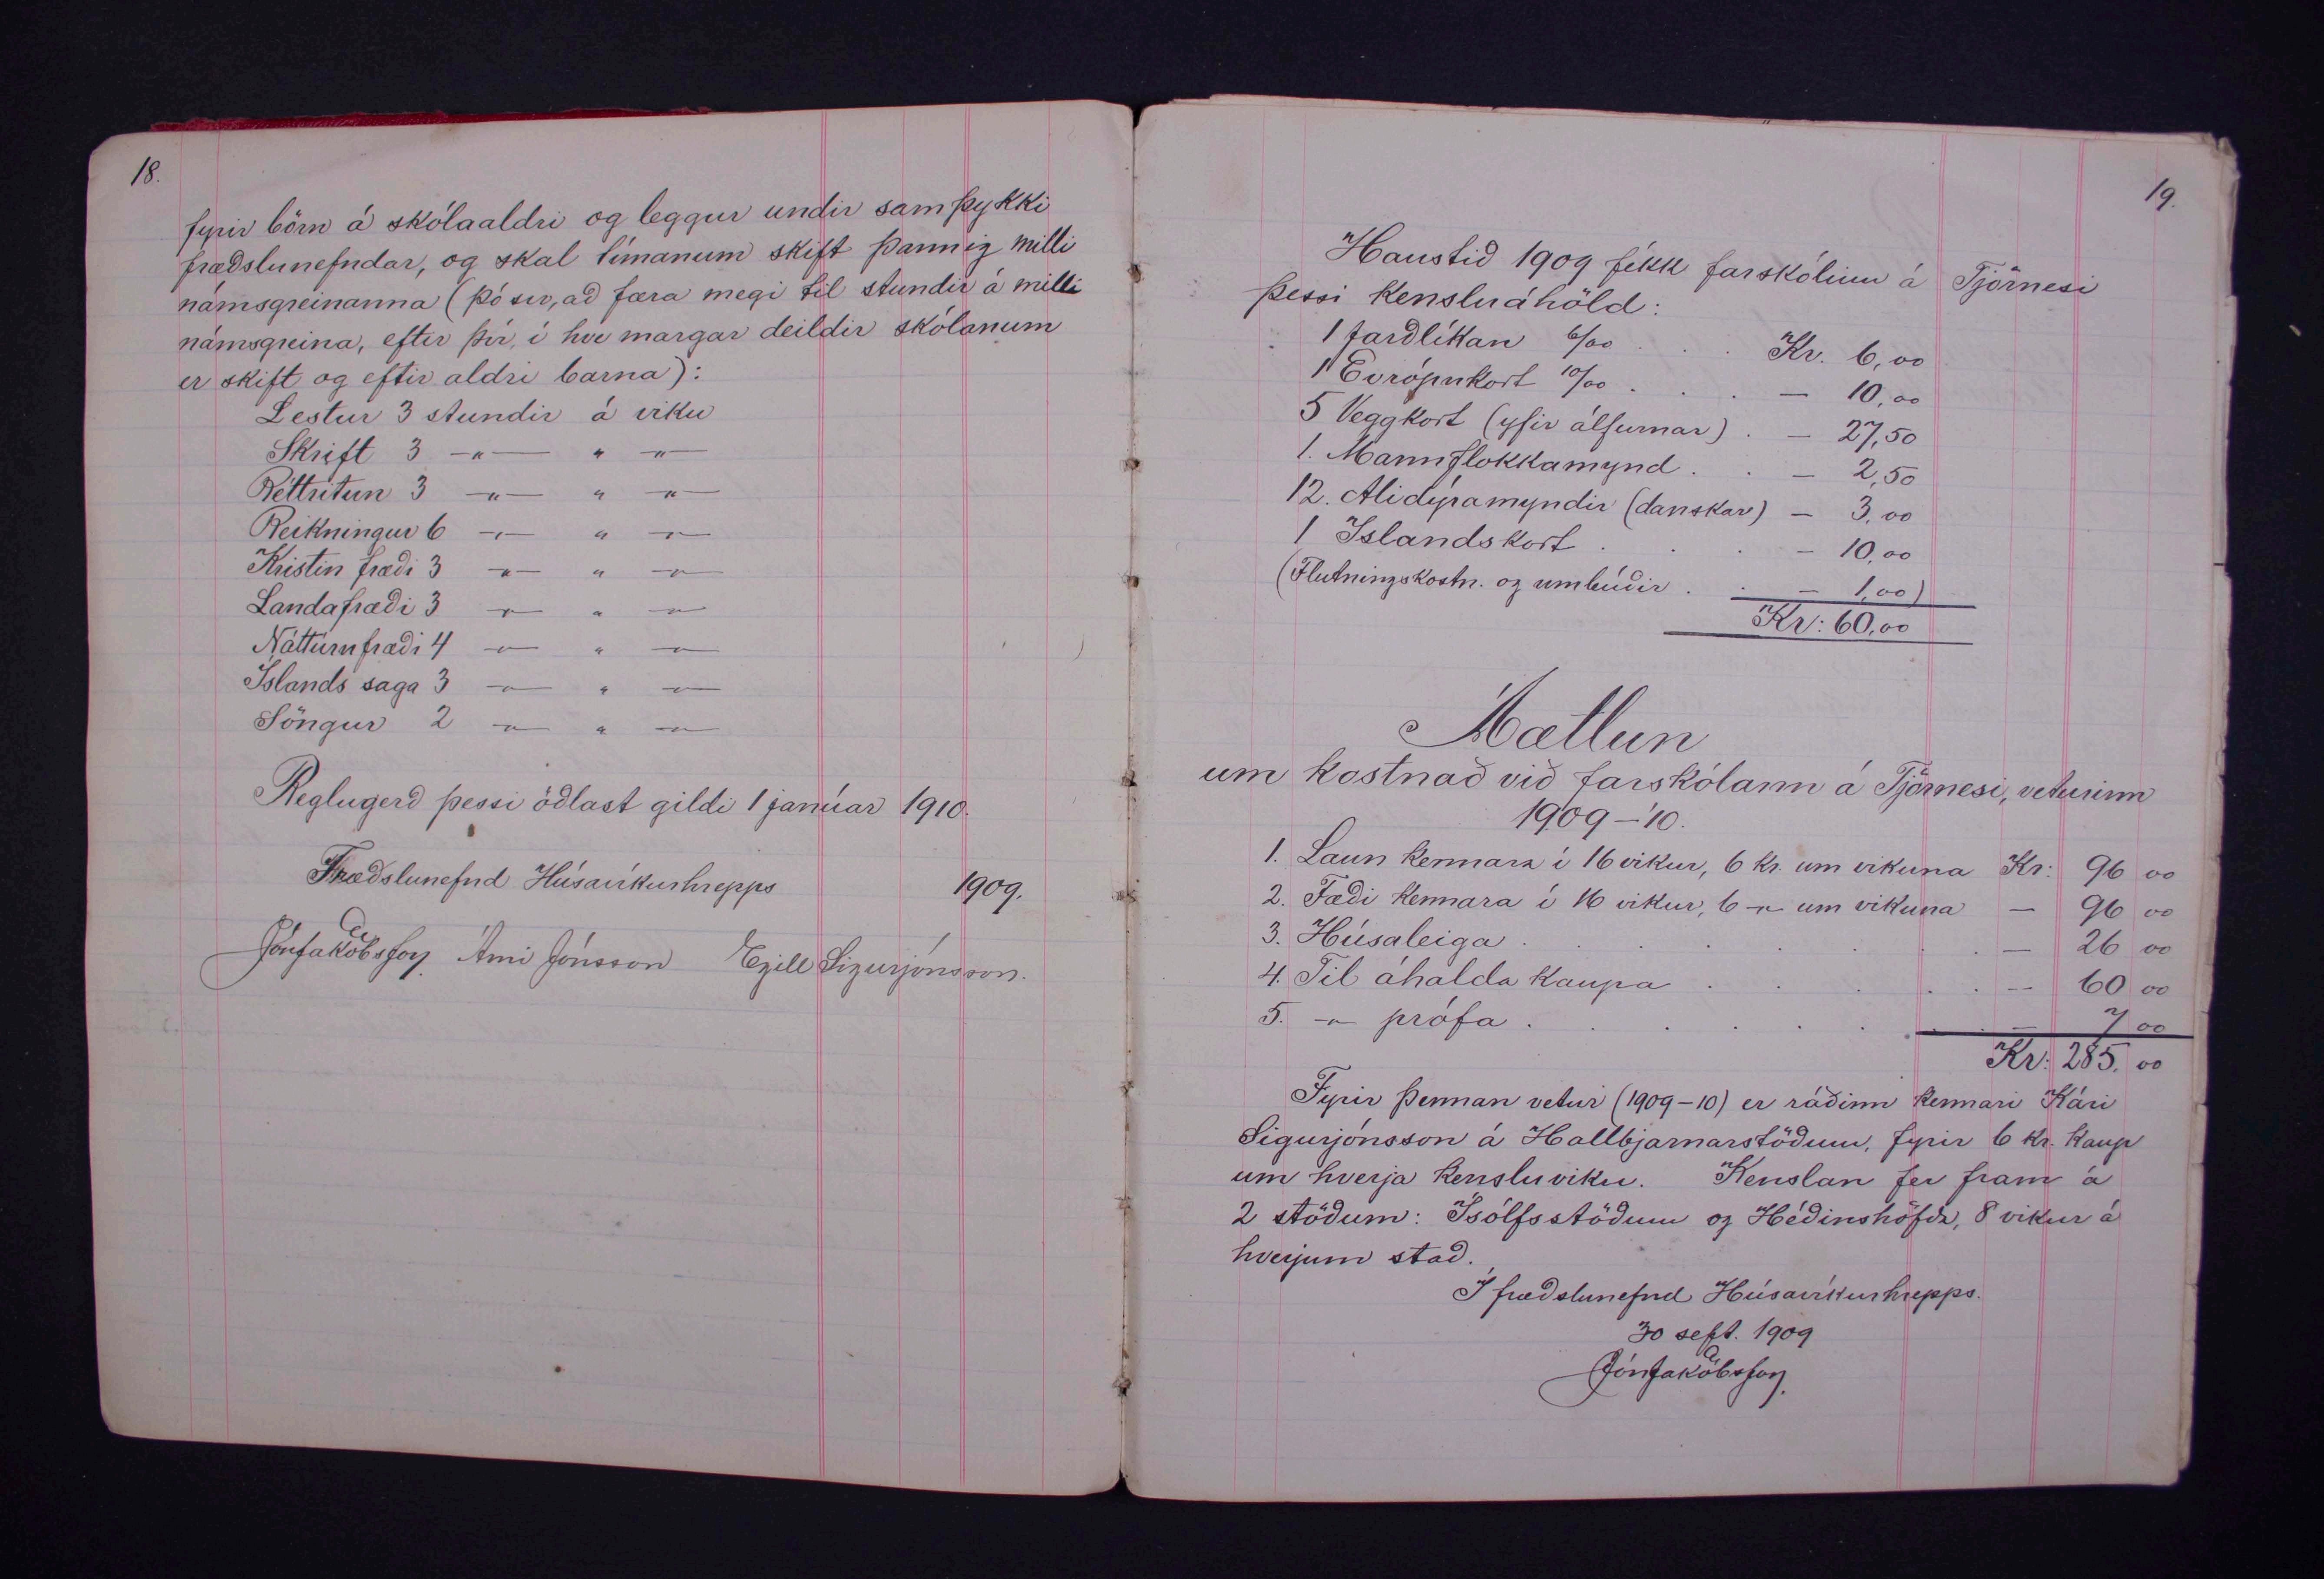 18.
fyrir börn á skólaaldri og leggur undir samþykki
fræðslunefndar, og skal tímanum skift þannig milli
námsgreinanna (þó svo, að færa megi til stundir á milli
námsgreina, eftir því, í hve margar deildir skólanum
er skift og eftir aldri barna):
Lestur 3 stundir á viku
Skrift 3 —"— " —"—
Réttritun 3 —"— " —"—
Reikningur 6 —"— " —"—
Kristin fræði 3 —"— " —"—
Landafræði 3 —"— " —"—
Náttúrufræði 4 —"— " —"—
Íslands saga 3 —"— " —"—
Söngur 2 —"— " —"—
Reglugerð þessi öðlast gildi 1 janúar 1910.
Fræðslunefnd Húsavíkurhrepps 1909.
Jón A Jakobsson Árni Jónsson Egill Sigurjónsson.
19.
Haustið 1909 fékk farskólinn á Tjörnesi
þessi kensluáhöld:
1 Jarðlíkan 6/00 . . . Kr. 6,00
1 Evrópukort 10/00 . . . — 10,00
5 Veggkort (yfir álfurnar) . — 27,50
1. Mannflokkamynd . . — 2,50
12. Alidýramyndir (danskar) — 3,00
1 Íslandskort . . . — 10,00
(Flutningskostn. og umbúðir . . — 1,00)
Kr: 60,00
Áætlun
um kostnað við farskólann á Tjörnesi, veturinn
1909–'10.
1. Laun kennara í 16 vikur, 6 kr. um vikuna Kr: 96 00
2. Fæði kennara í 16 vikur, 6 —"— um vikuna — 96 00
3. Húsaleiga . . . . . . . — 26 00
4. Til áhalda kaupa . . . . . — 60 00
5. —"— prófa . . . . . . . — 7 00
Kr: 285,00
Fyrir þennan vetur (1909–10) er ráðinn kennari Kári
Sigurjónsson á Hallbjarnarstöðum, fyrir 6 kr. kaup
um hverja kensluviku. Kenslan fer fram á
2 stöðum: Ísólfsstöðum og Héðinshöfða, 8 vikur á
hverjum stað.
Í fræðslunefnd Húsavíkurhrepps.
30 sept. 1909
Jón A Jakobsson.